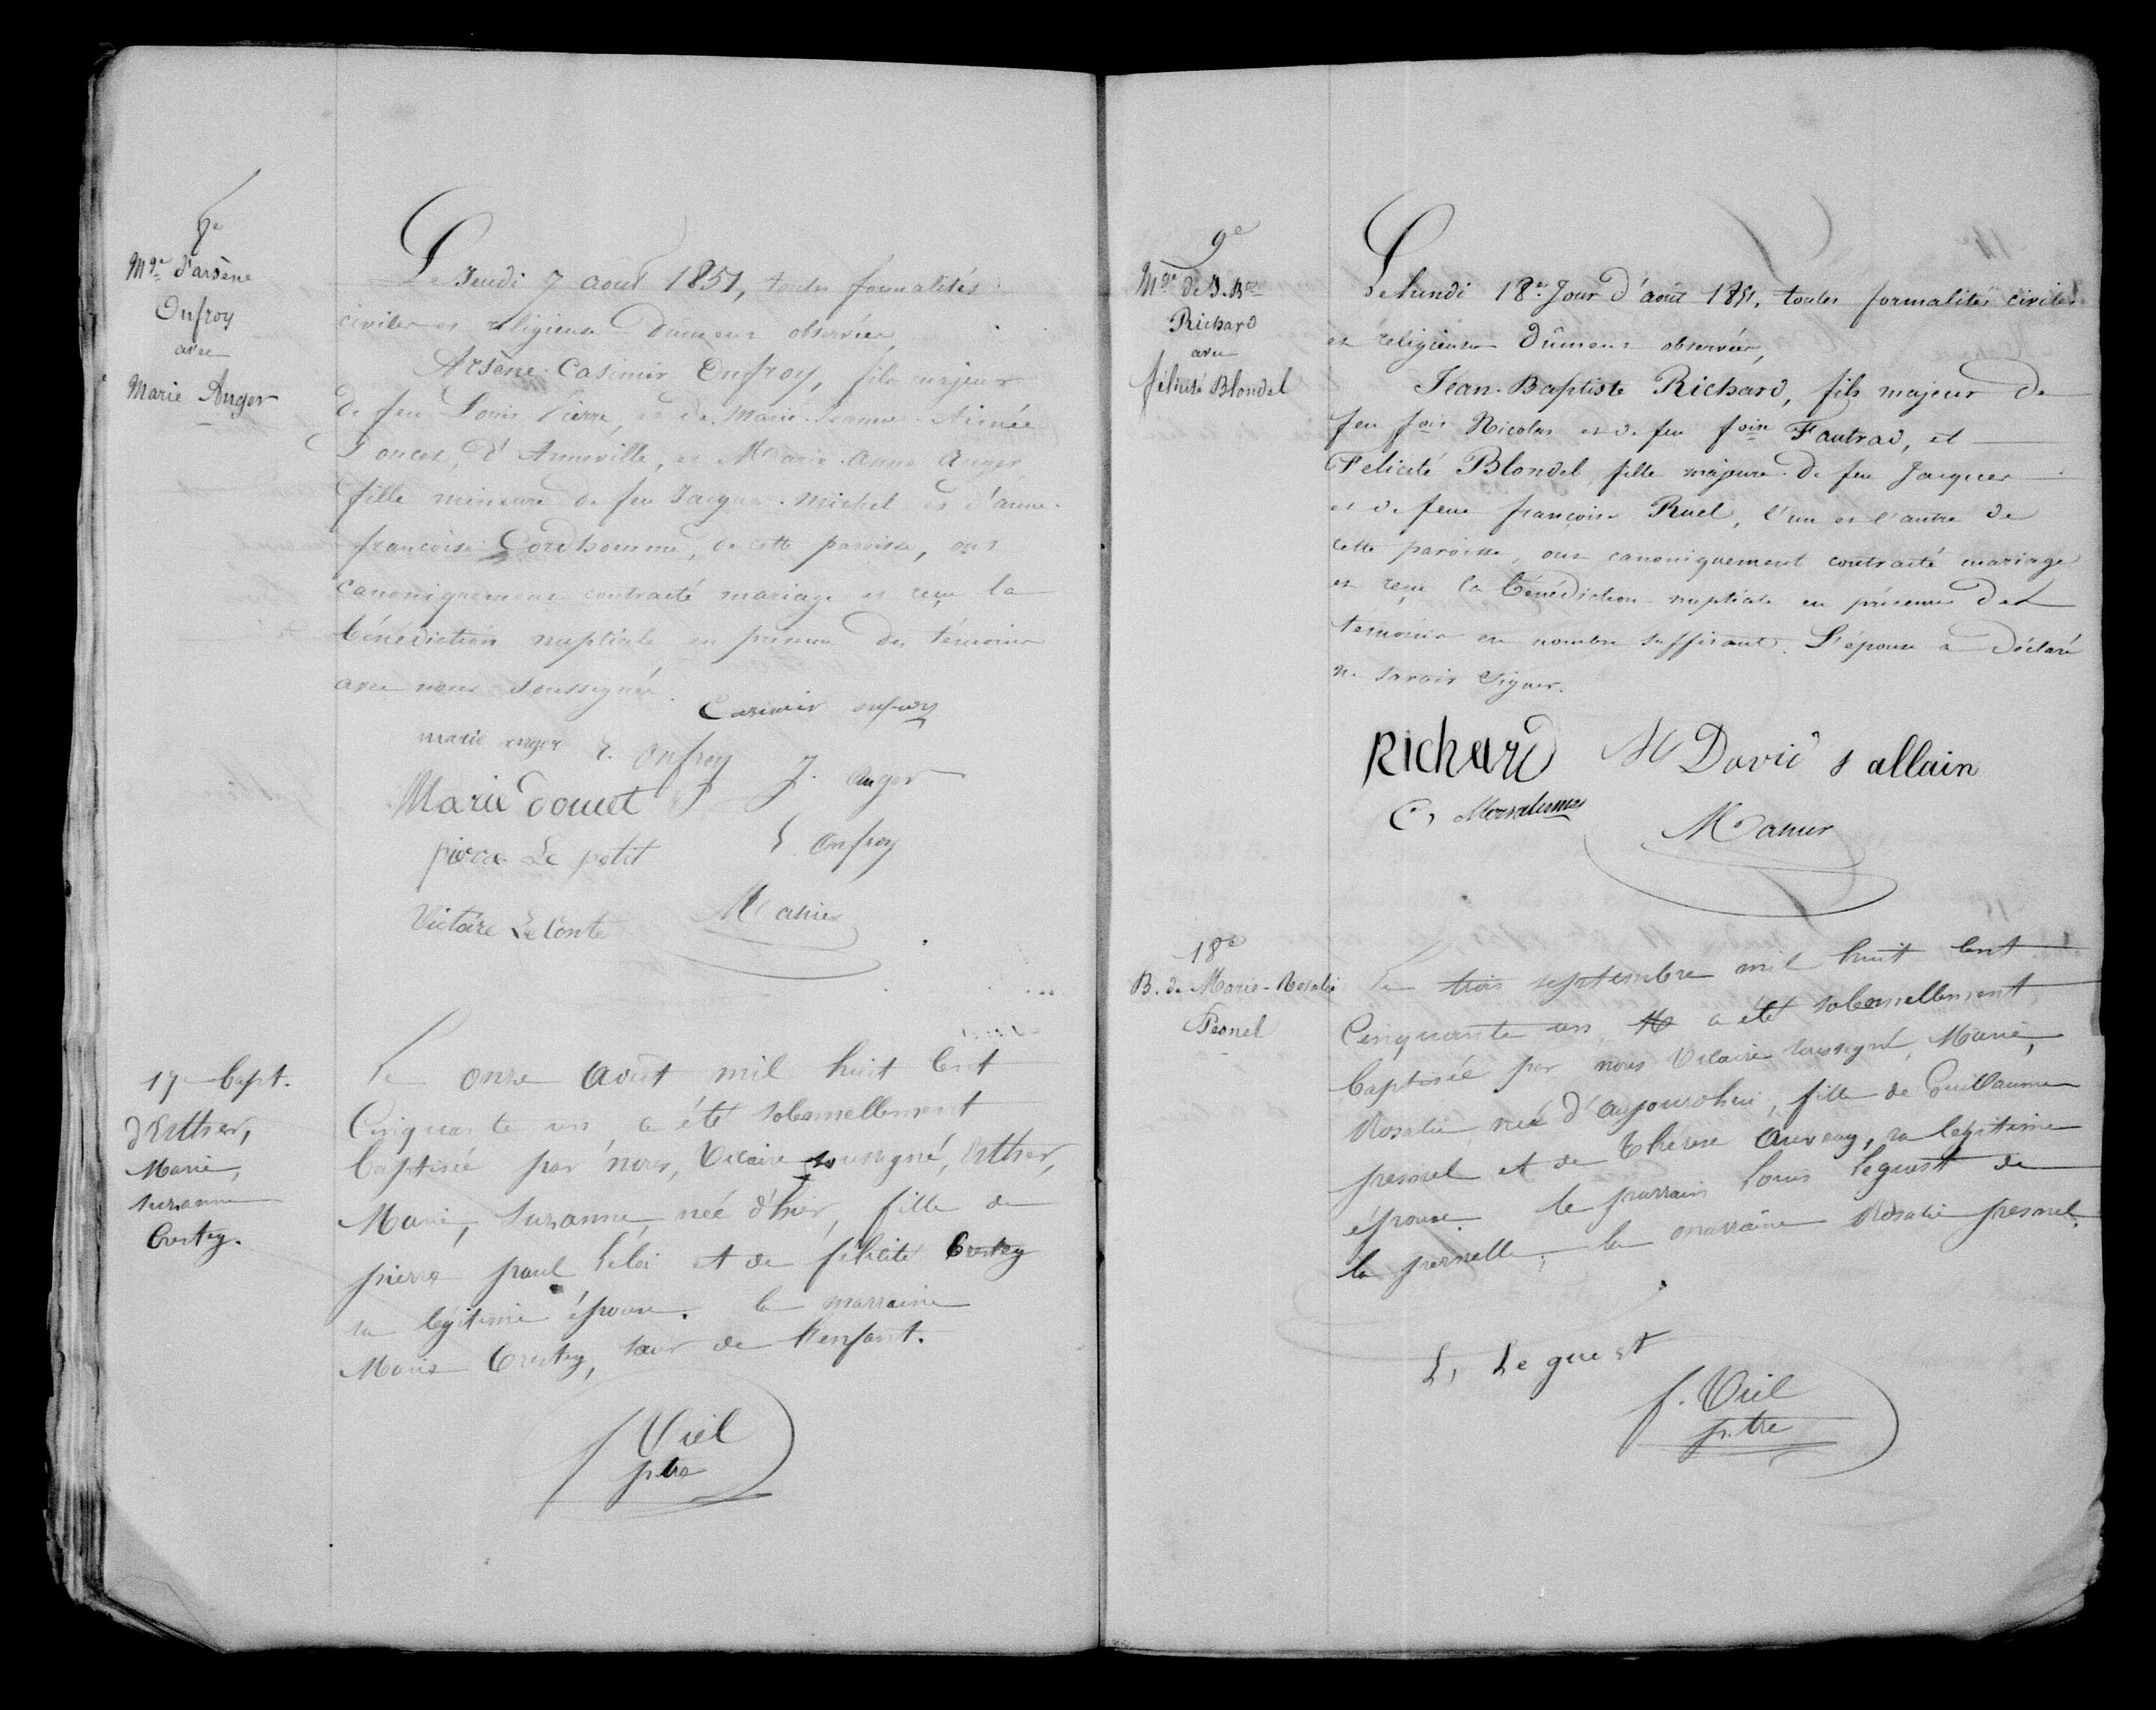 8e
Mge d'arsène
Onfroy
avec
Marie Anger
Le Jeudi 7 aout 1851, toutes formalités
civiles et religieuses dument observées,
Arsène-Casimir Onfroy, fils majeur
de feu Louis Pierre, et de Marie-Jeanne-Aimée
Doucet, d'Anneville, et Marie-Anne Anger,
fille mineure de feu Jacques-Michel et d'anne-
françoise Cordhomme, de cette paroisse, ont
canoniquement contracté mariage et reçu la
bénédiction nuptiale en présence des témoins
avec nous soussignés.
Casimir onfroy
marie anger onfroy J. Anger
Marie doucet
pierre Le petit L Onfroy
Victoire LeConte
17e bapt.
d'Esther,
Marie,
suzanne
Crestey.
Le onze Août mil huit Cent
Cinquante un a été solennellement
baptisée par nous, Vicaire soussigné, Esther,
Marie, Suzanne, née d'hier, fille de
pierre paul et de félicité Crestey
sa légitime épouse. la marraine
Marie Crestey, sœur de l'enfant.
f Viel
ptre
9e
Mge de J. Bte
Richard
avec
félicité Blondel
Le lundi 18e Jour d'août 1851, toutes formalités civiles
et religieuses dûment observées,
Jean-Baptiste Richard, fils majeur de
feu fois Nicolas et de feu foise Fautrad, et
Felicité Blondel, fille majeure de feu Jacques
et de feue françoise Ruel, l'un et l'autre de
cette paroisse, ont canoniquement contracté mariage
et reçu la bénédiction nuptiale en présence des
témoins en nombre suffisant. L'épouse a déclaré
ne savoir signer.
Richard M David s allain
C,
18e
B. de Marie-Rosalie
Pesnel
Le trois septembre mil huit Cent
Cinquante un, a été solennellement
baptisée par nous Vicaire soussigné, Marie,
Rosalie née d'aujourdhui, fille de Guillaume
pesnel et de thérèse Auvray, sa légitime
épouse. le parrain Louis Leguest de
la pernelle; la marraine Rosalie pesnel.
L, Leguest
f. Viel
p.tre